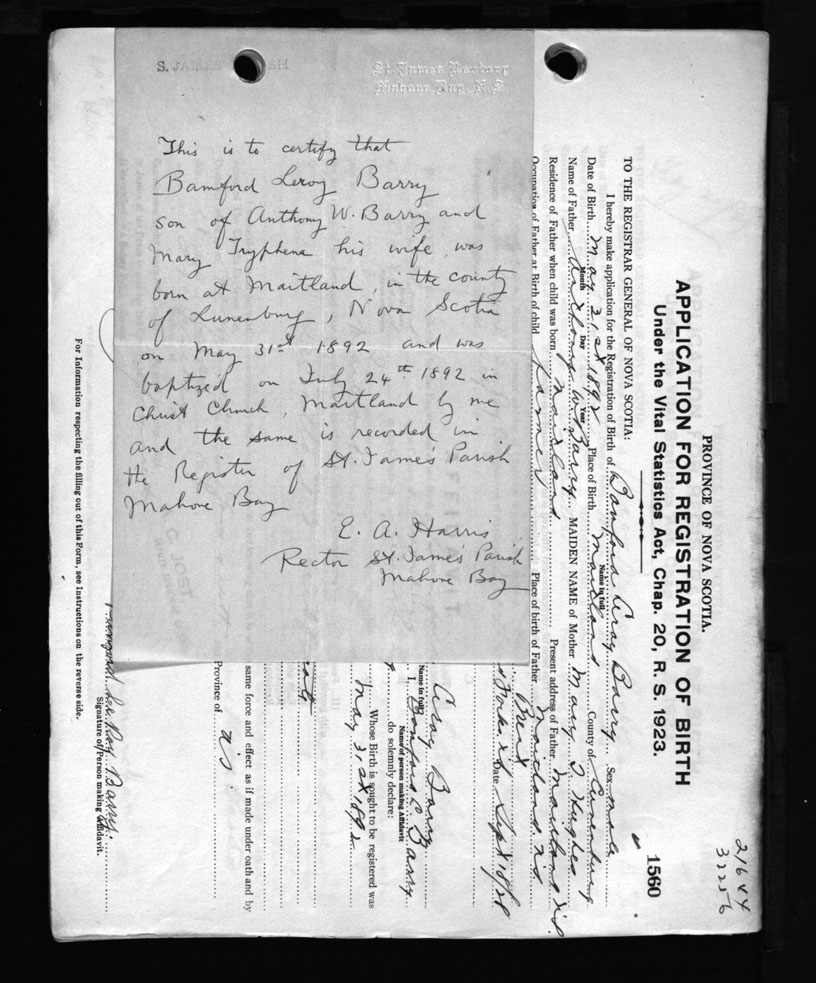 St. James Rectory
Mahone Bay, N. S.
This is to certify that
Bamford Leroy Barry
son of Anthony W. Barry and
Mary Tryphena his wife, was
born at Maitland, in the county
of Lunenburg, Nova Scotia
on May 31st 1892 and was
baptized on July 24th 1892 in
Christ Church, Maitland by me
and the same is recorded in
the Register of St. James's Parish
Mahone Bay
E. A. Harris
Rector St. James' Parish
Mahone Bay
PROVINCE OF NOVA SCOTIA.
APPLICATION FOR REGISTRATION OF BIRTH
Under the Vital Statistics Act, Chap. 20, R. S. 1923.
1560
TO THE REGISTRAR GENERAL OF NOVA SCOTIA:
I hereby make application for the Registration of Birth of Bamford Aroy Barry Sex male
Name in full
Date of Birth May 31st 1892 Place of Birth Maitland County of Lunenburg
Month Day Year
Name of Father Anthony W. Barry MAIDEN NAME of Mother Mary T Hughes
Residence of Father when child was born Maitland Present address of Father Maitland
Occupation of Father at Birth of child farmer Place of birth of Father Maitland NS
Date Sept
Aroy Barry
Name in full
I, Bamford Barry
Name of person making Affidavit
do solemnly declare:
Whose Birth is sought to be registered was
May 31st 1892
same force and effect as if made under oath and by
Province of
LeRoy Barry.
Signature of Person making Affidavit.
For Information respecting the filling out of this Form, see Instructions on the reverse side.